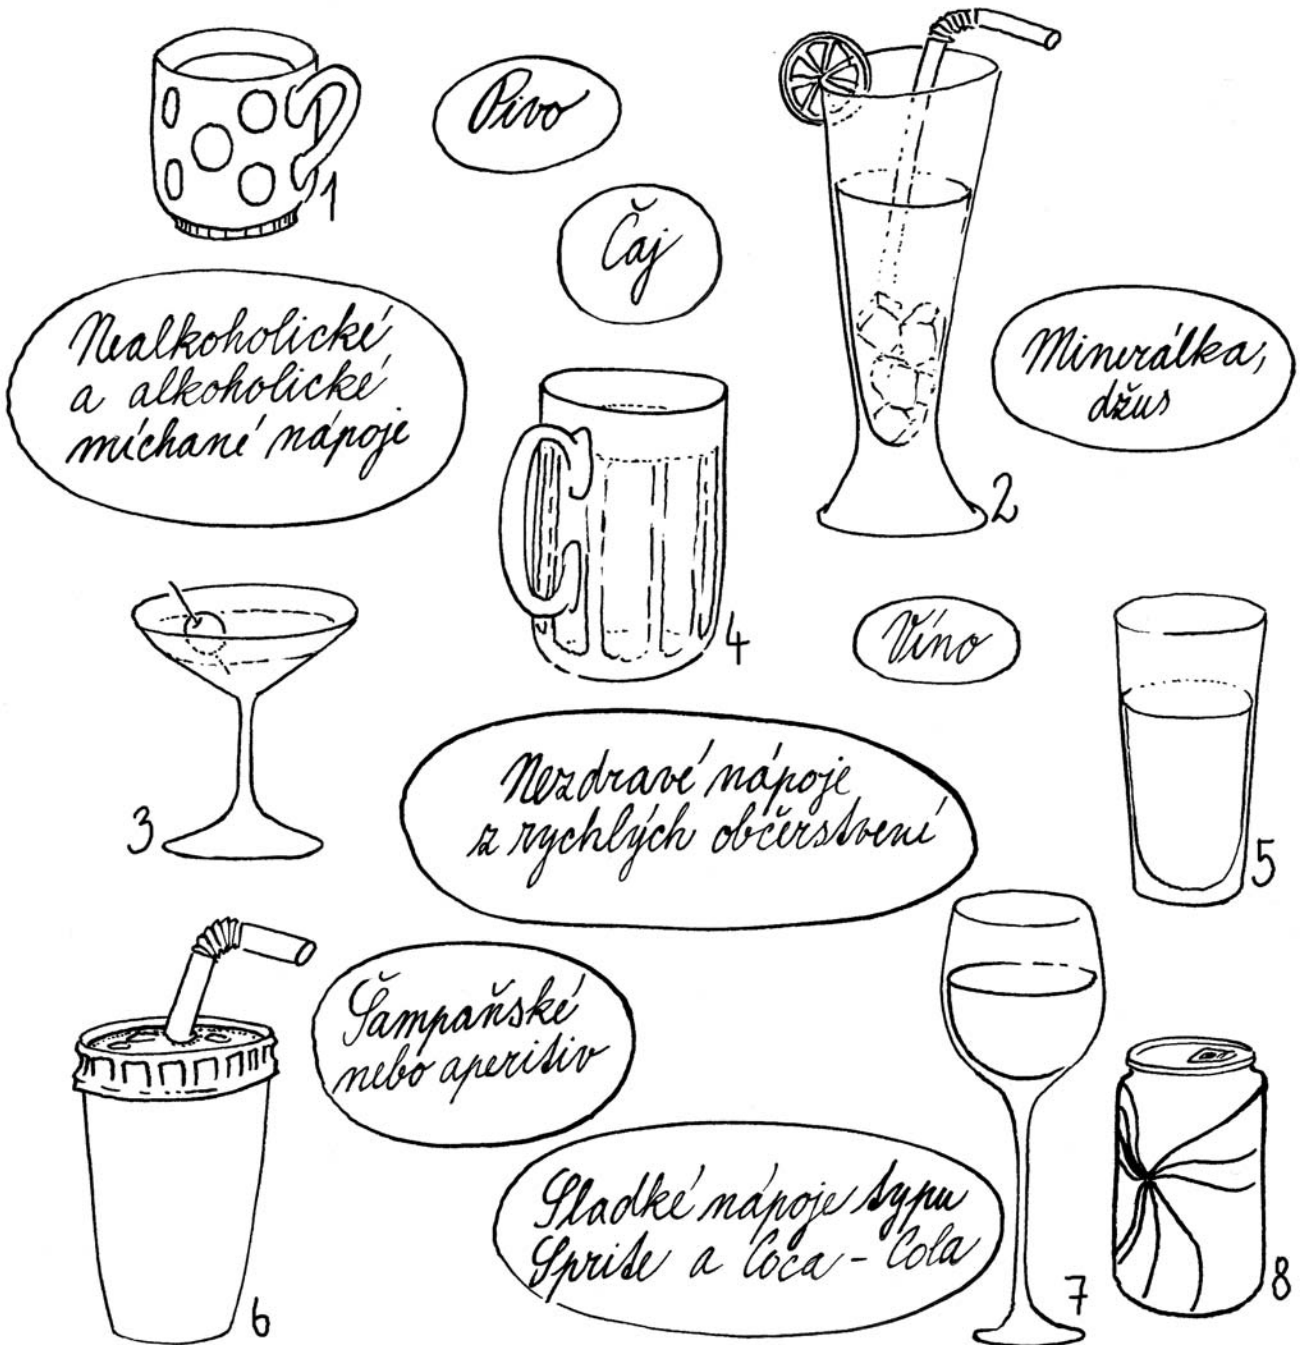 Pivo
1
Čaj
Nealkoholické
a alkoholické
míchané nápoje
Minerálka,
džus
2
4
Víno
3
Nezdravé nápoje
z rychlých občerstvení
5
Šampaňské
nebo aperitiv
Sladké nápoje typu
Sprite a Coca - Cola
6
7
8